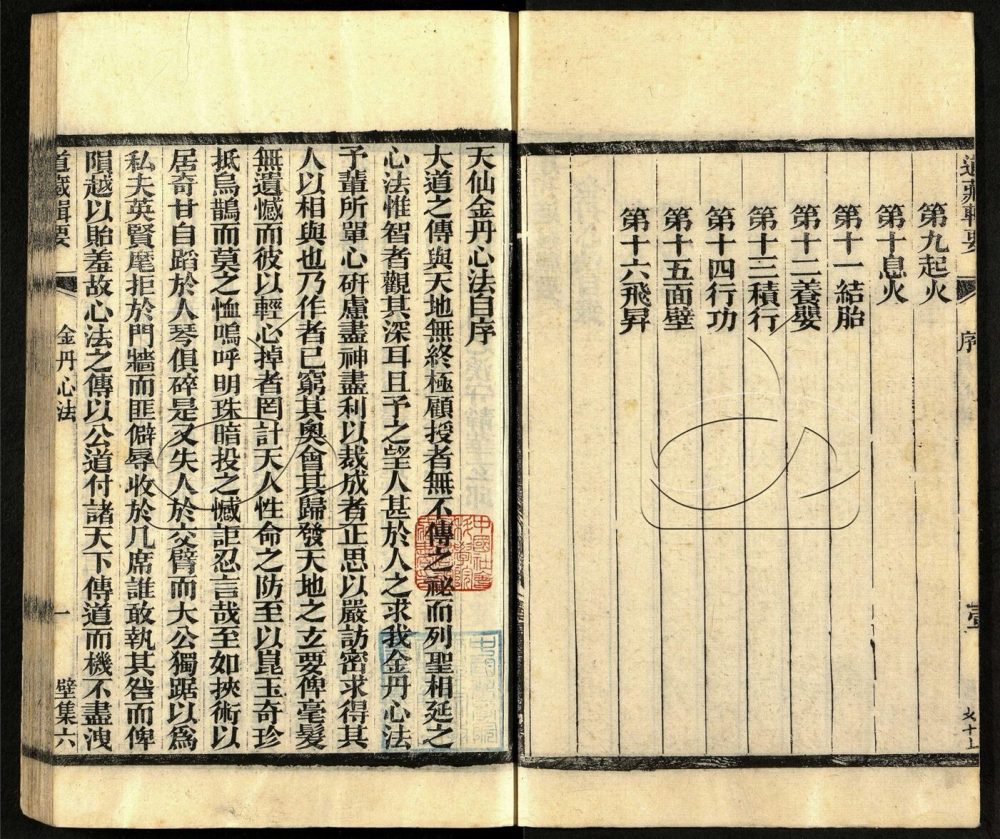 道藏輯要
序
第九起火
第十息火
第十一結胎
第十二養嬰
第十三積行
第十四行功
第十五面壁
第十六飛昇
天仙金丹心法自序
大道之傳與天地無終極顧授者無不傳之祕而列聖相延之
心法惟智者觀其深耳且予之望人甚於人之求我金丹心法
予輩所單心研慮盡神盡利以裁成者正思以嚴訪密求得其
人以相與也乃作者已窮其奧會其歸發天地之玄要俾毫髮
無遺憾而彼以輕心掉者罔計天人性命之防至以崑玉奇珍
抵烏鵲而莫之恤嗚呼明珠暗投之憾詎忍言哉至如挾術以
居奇甘自蹈於人琴俱碎是又失人於交臂而大公獨踞以為
私夫英賢麾拒於門牆而匪僻辱收於几席誰敢執其咎而俾
隕越以貽羞故心法之傳以公道付諸天下傳道而機不盡洩
道藏輯要
金丹心法
一
壁集六